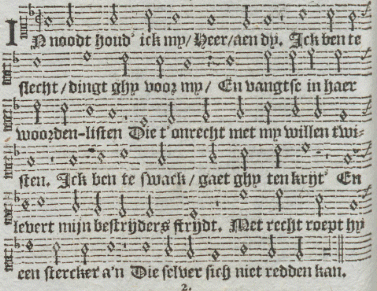 IN noodt houd' ick my/ Heer/ aen dy. Ick ben te
slecht/ dingt ghy voor my/ En vangtse in haer
woorden-listen Die t'onrecht met my willen twi-
sten. Ick ben te swack/ gaet ghy ten krijt' En
levert mijn bestrijders strijdt. Met recht roept hy
een stercker a'n Die selver sich niet redden kan.
2.